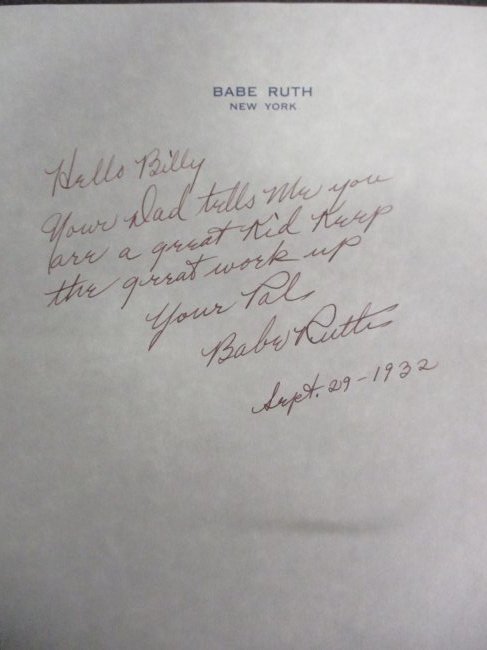 BABE RUTH
NEW YORK
Hello Billy
Your Dad tells me you
are a great Kid Keep
the great work up
Your Pal
Babe Ruth
Sept. 29-1932